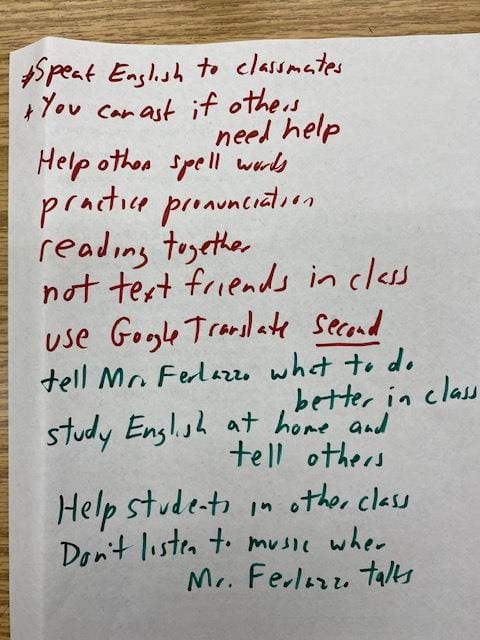 * Speak English to classmates
* You can ask if others
need help
Help others spell words
practice pronunciation
reading together
not text friends in class
use Google Translate second
tell Mr. Ferlazzo what to do
better in class
study English at home and
tell others
Help students in other class
Don't listen to music when
Mr. Ferlazzo talks